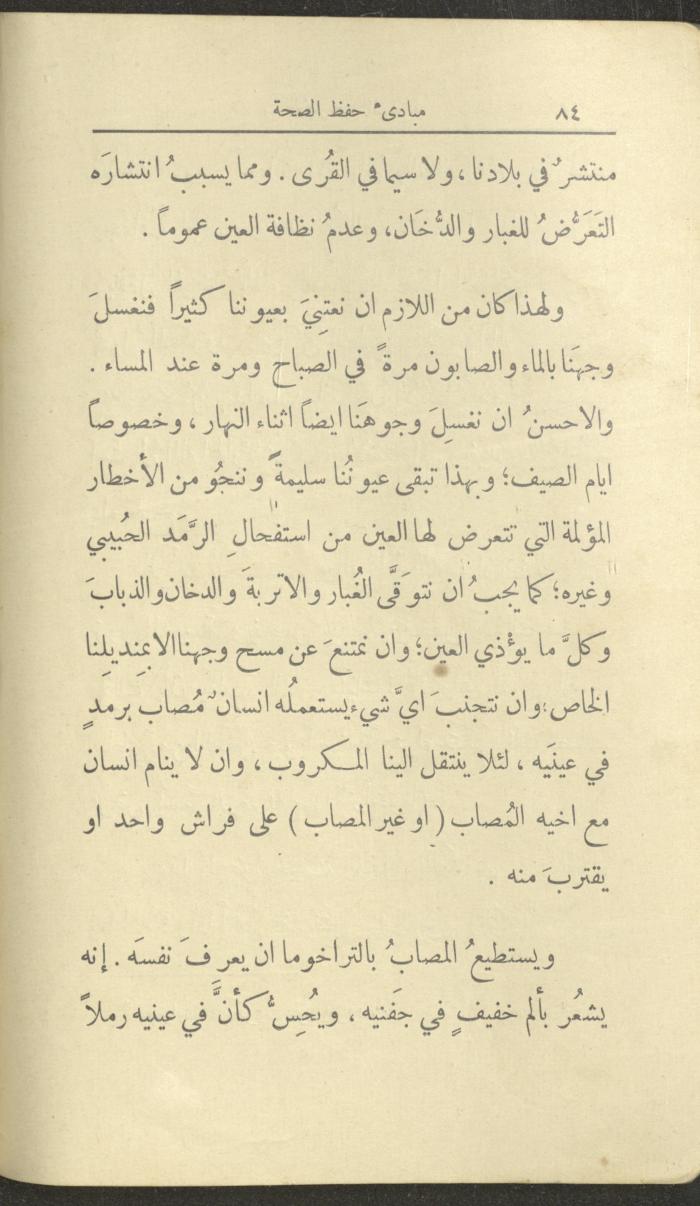 ٨٤ مبادىء حفظ الصحة
منتشرٌ في بلادنا ، ولا سيما في القُرى . ومما يسببُ انتشارَه
التَعَرُّضُ للغبار والدُّخَان ، وعدمُ نظافة العين عموماً .
ولهذا كان من اللازم ان نعتِنيَ بعيوننا كثيراً فنغسلَ
وجهَنا بالماء والصابون مرةً في الصباح ومرة عند المساء .
والاحسنُ ان نغسِلَ وجوهَنا ايضاً اثناء النهار ، وخصوصاً
ايام الصيف ؛ وبهذا تبقى عيونُنا سليمةً وننجُو من الأخطار
المؤلمة التي تتعرض لها العين من استفحالِ الرَّمَد الحُبيبي
وغيره ؛ كما يجبُ ان نتوَقَّى الغُبار والاتربةَ والدخان والذبابَ
وكلَّ ما يؤْذي العين ؛ وان نمتنعَ عن مسح وجهنا الا بمِنديلِنا
الخاص ؛ وان نتجنبَ ايَّ شيء يستعملُه انسانٌ مُصاب برمدٍ
في عينَيه ، لئلا ينتقل الينا المكروب ، وان لا ينام انسان
مع اخيه المُصاب ( او غير المصاب ) على فراش واحد او
يقتربَ منه .
ويستطيعُ المصابُ بالتراخوما ان يعرفَ نفسَه . إنه
يشعُر بألم خفيفٍ في جَفنَيه ، ويُحِسُّ كأنَّ في عينيه رملاً